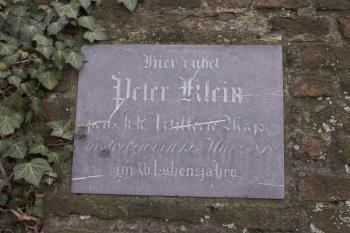 Hier ruhet
Peter Klein
pens. k.k.
gestorben den 15. März
im Lebensjahre.